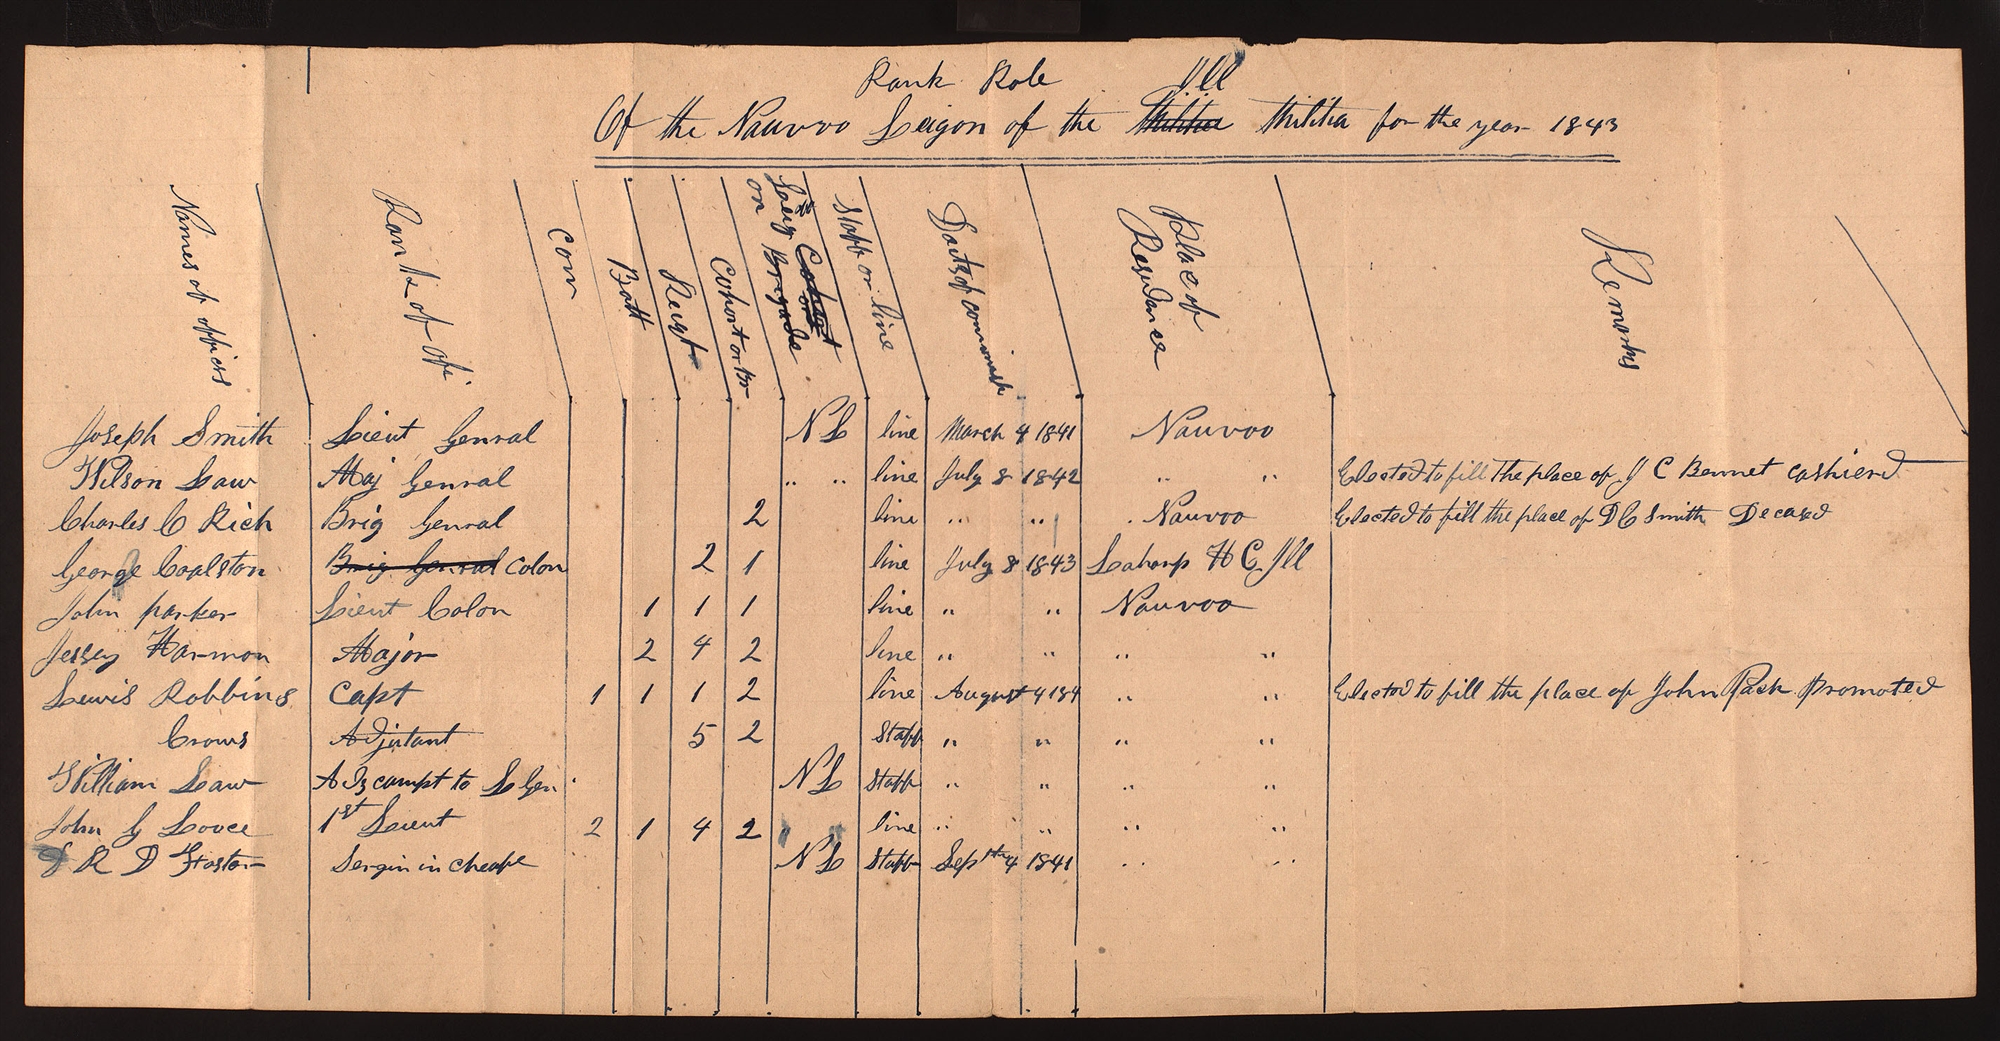 Rank Role
Of the Nauvoo Leigon of the Militia Ill Militia for the year 1843
Names of officers Rank of ofi Com Batt Reigt Cohort or Br Leig on Cohort or Brigade Staff or line Place of Resedance Remarks
Joseph Smith Lieut Genral N L line March 4 1841 Nauvoo
Wilson Law Maj Genral " " line July 8 1842 " " Elected to fill the place of J C Bennet cashierd
Charles C Rich Brig Genral 2 line " " Nauvoo Elected to fill the place of D C Smith Decased
George Coalston Brig Genral Colon 2 1 line July 8 1843 Laharp H C Ill
John parker Lieut Colon 1 1 1 line " " Nauvoo
Jessey Harmon Major 2 4 2 line " " " "
Lewis Robbins Capt 1 1 1 2 line August 4 184 " " Elected to fill the place of John Pack Promoted
Crows Adjutant 5 2 Staff " " " "
William Law to L Gen N L Staff " " " "
John G Lovce 1st Lieut 2 1 4 2 " " line " " " "
R D Foster Sergin in cheafe N L Staff Septh 4 1841 " "